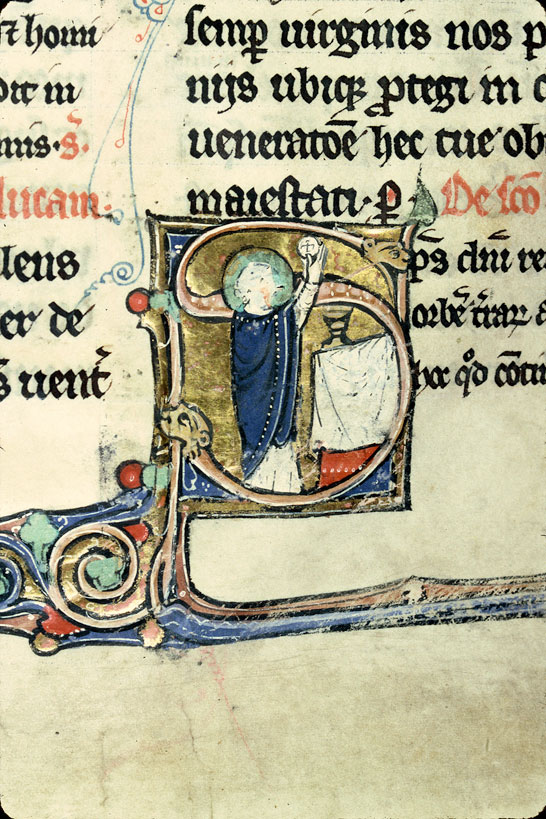 st homi
dit in
mis· s̄.
lucam.
lens
er de
s uentr̄
semꝑ uirginis nos p
nijs ubiqꝫ ꝓtegi in c
ueneratōe hec tue ob
maiestati· ꝑ. De sc̄o
ps̄ dn̄i re
orbē tr̄aꝝ
qͦd cōti